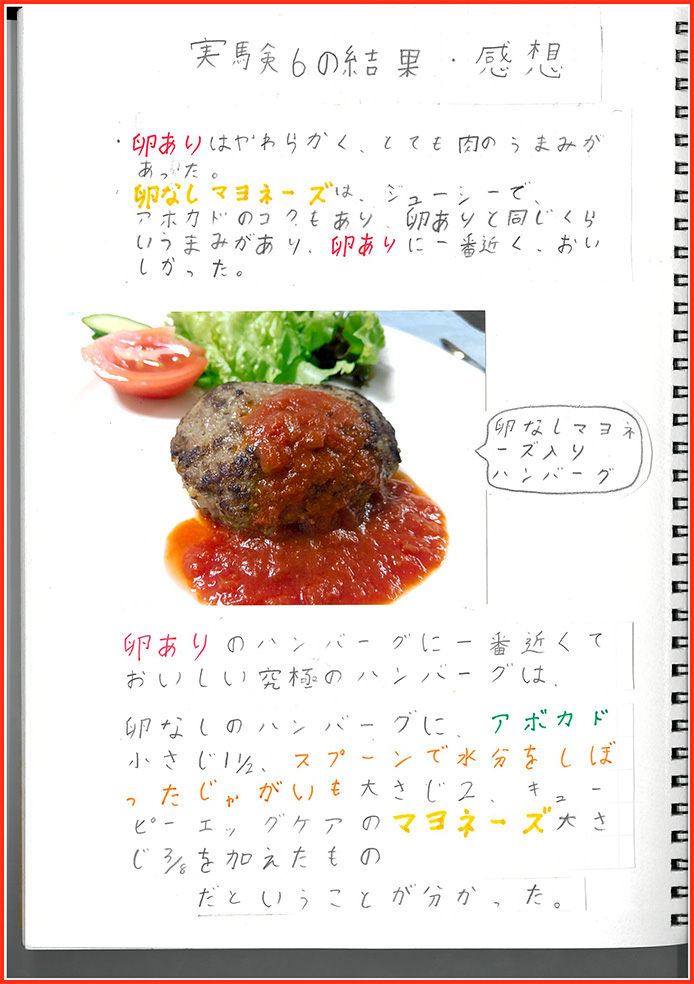 実験6の結果・感想
・卵ありはやわらかく、とても肉のうまみが
あった。
・卵なしマヨネーズは、ジューシーで、
アボカドのコクもあり、卵ありと同じくら
いうまみがあり、卵ありに一番近く、おい
しかった。
卵なしマヨネ
ーズ入り
ハンバーグ
卵ありのハンバーグに一番近くて
おいしい究極のハンバーグは、
卵なしのハンバーグに、アボカド
小さじ1 1/2、スプーンで水分をしぼ
ったじゃがいも大さじ2、キュー
ピーエッグケアのマヨネーズ大さ
じ3/8を加えたもの
だということが分かった。